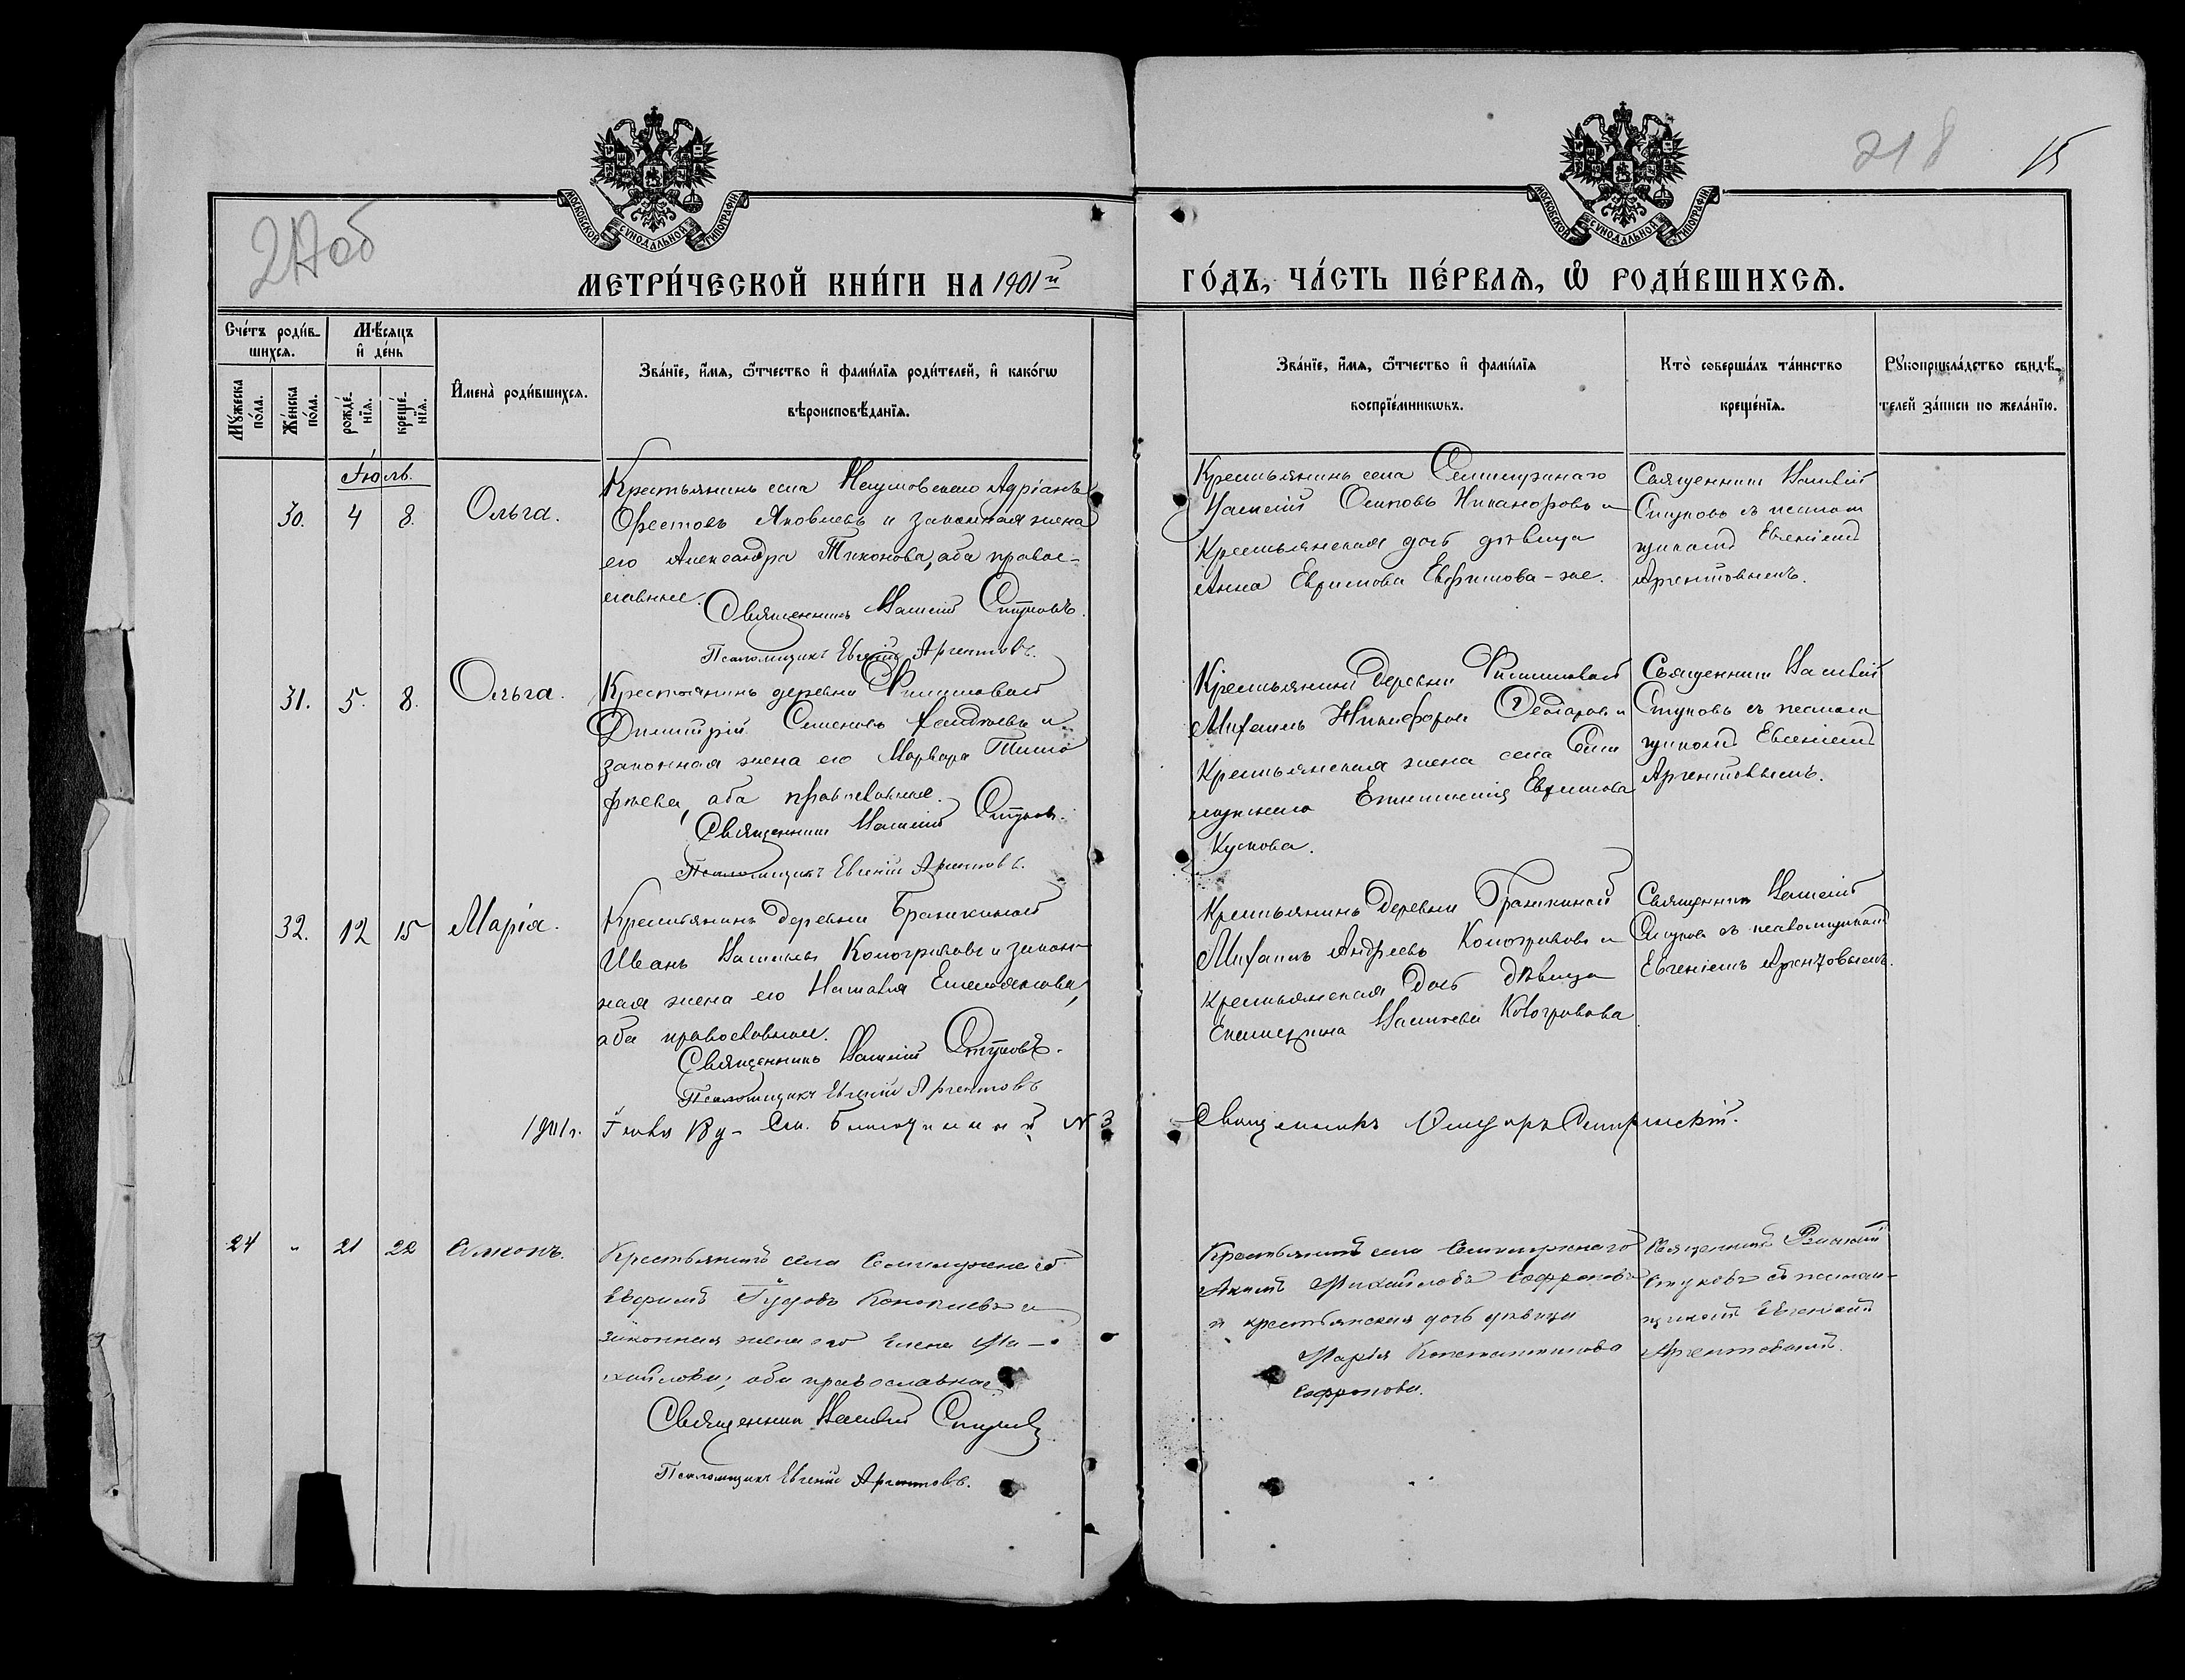 217 об
218
15
МОСКОВСКОЙ СѴНОДАЛЬНОЙ ТИПОГРАФІИ
МОСКОВСКОЙ СѴНОДАЛЬНОЙ ТИПОГРАФІИ
МЕТРИ́ЧЕСКОЙ КНИ́ГИ НА 1901й
ГО́ДЪ, ЧА́СТЬ ПЕ́РВАѦ, Ѡ҆ РОДИ́ВШИХСѦ.
Сче́тъ роди́в-
шихсѧ.
Мѣ́сѧцъ
и҆ де́нь
Мꙋ́жеска
по́ла.
Же́нска
по́ла.
рожде́-
нїѧ.
креще́-
нїѧ.
И҆мена̀ роди́вшихсѧ.
Зва́нїе, и҆́мѧ, ѻ҆́тчество и҆ фами́лїѧ роди́телей, и҆ како́гѡ
вѣроисповѣ́данїѧ.
Зва́нїе, и҆́мѧ, ѻ҆́тчество и҆ фами́лїѧ
воспрїе́мникѡвъ.
Кто̀ соверша́лъ та́инство
креще́нїѧ.
Рꙋкоприкла́дство свидѣ́-
телей за́писи по жела́нїю.
Іюль.
30. 4 8. Ольга.
Крестьянинъ села Наумовскаго Адріанъ
Орестовъ Яковлевъ и законная жена
его Александра Тихонова, оба правос-
лавные.
Священникъ Василій Стуковъ.
Псаломщикъ Евгеній Аргентовъ.
Крестьянинъ села Семилужнаго
Василій Осиповъ Никаноровъ и
Крестьянская дочь дѣвица
Анна Евфимова Евфимова-же.
Священникъ Василій
Стуковъ съ псалом
щикомъ Евгеніемъ
Аргентовымъ.
31. 5. 8. Ольга.
Крестьянинъ деревни
Димитрій Семеновъ и
законная жена его Варвара Тимо
фѣева, оба православные.
Священникъ Василій Стуковъ.
Псаломщикъ Евгеній Аргентовъ.
Крестьянинъ деревни
Михаилъ Никифоровъ Ѳедоровъ и
Крестьянская жена села Семи
лужнаго Евфимова
Кускова.
Священникъ Василій
Стуковъ съ псалом
щикомъ Евгеніемъ
Аргентовымъ.
32. 12 15 Марія.
Крестьянинъ деревни Бражкиной
Иванъ Васильевъ Кологривовъ и закон-
ная жена его Наталія Емельянова,
оба православные.
Священникъ Василій Стуковъ.
Псаломщикъ Евгеній Аргентовъ
Крестьянинъ деревни Бражкиной
Михаилъ Андреевъ Кологривовъ и
крестьянская дочь дѣвица
Екатерина Васильева Кологривова
Священникъ Василій
Стуковъ съ псаломщикомъ
Евгеніемъ Аргентовымъ.
1901 г. Іюля 18 д. См. Благочинный № 3
Священникъ
24 " 21 22 Симонъ.
Крестьянинъ села Семилужнаго
Евфимъ и
законная жена его Елена Ми-
хайлова, оба православные
Священникъ Василій Стуковъ
Псаломщикъ Евгеній Аргентовъ.
Крестьянинъ села Семилужнаго
Акимъ Михайловъ Софроновъ
и крестьянская дочь дѣвица
Марія Константинова
Софронова.
Священникъ Василій
Стуковъ съ псалом-
щикомъ Евгеніемъ
Аргентовымъ.